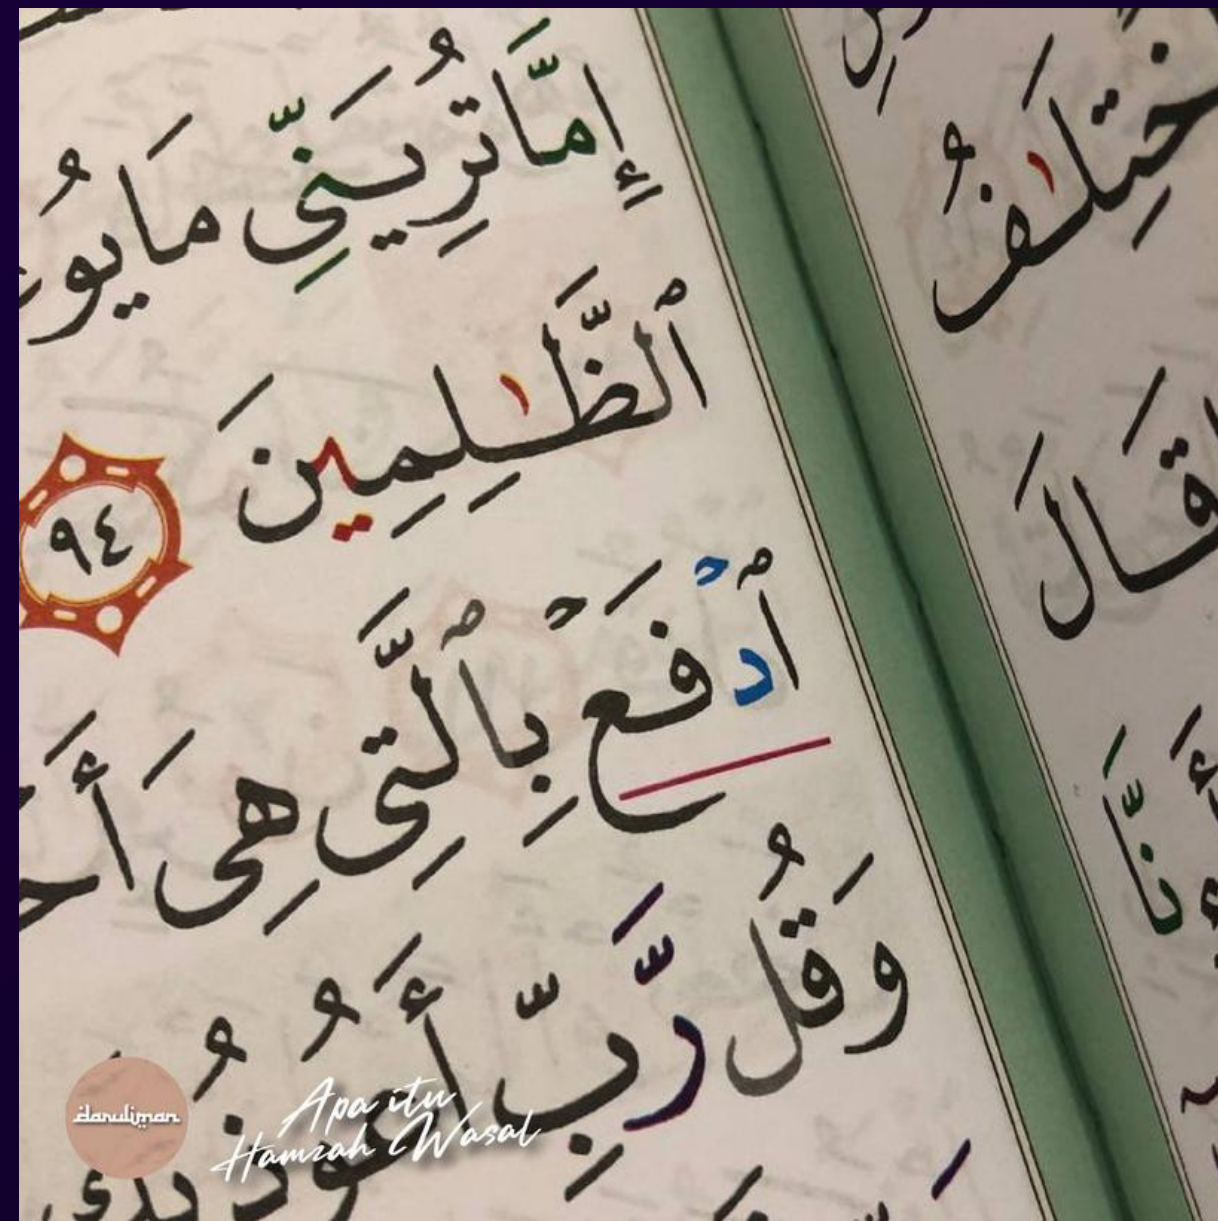 إِمَّا تُرِيَنِّي مَا يُو
ٱلظَّٰلِمِينَ ٩٤
ٱدْفَعْ بِٱلَّتِى هِىَ أَحـ
وَقُل رَّبِّ أَعُوذُ بِكَ
ـخْتِلَٰفُ
قَالَ
نَّا
daruliman
Apa itu
Hamzah Wasal